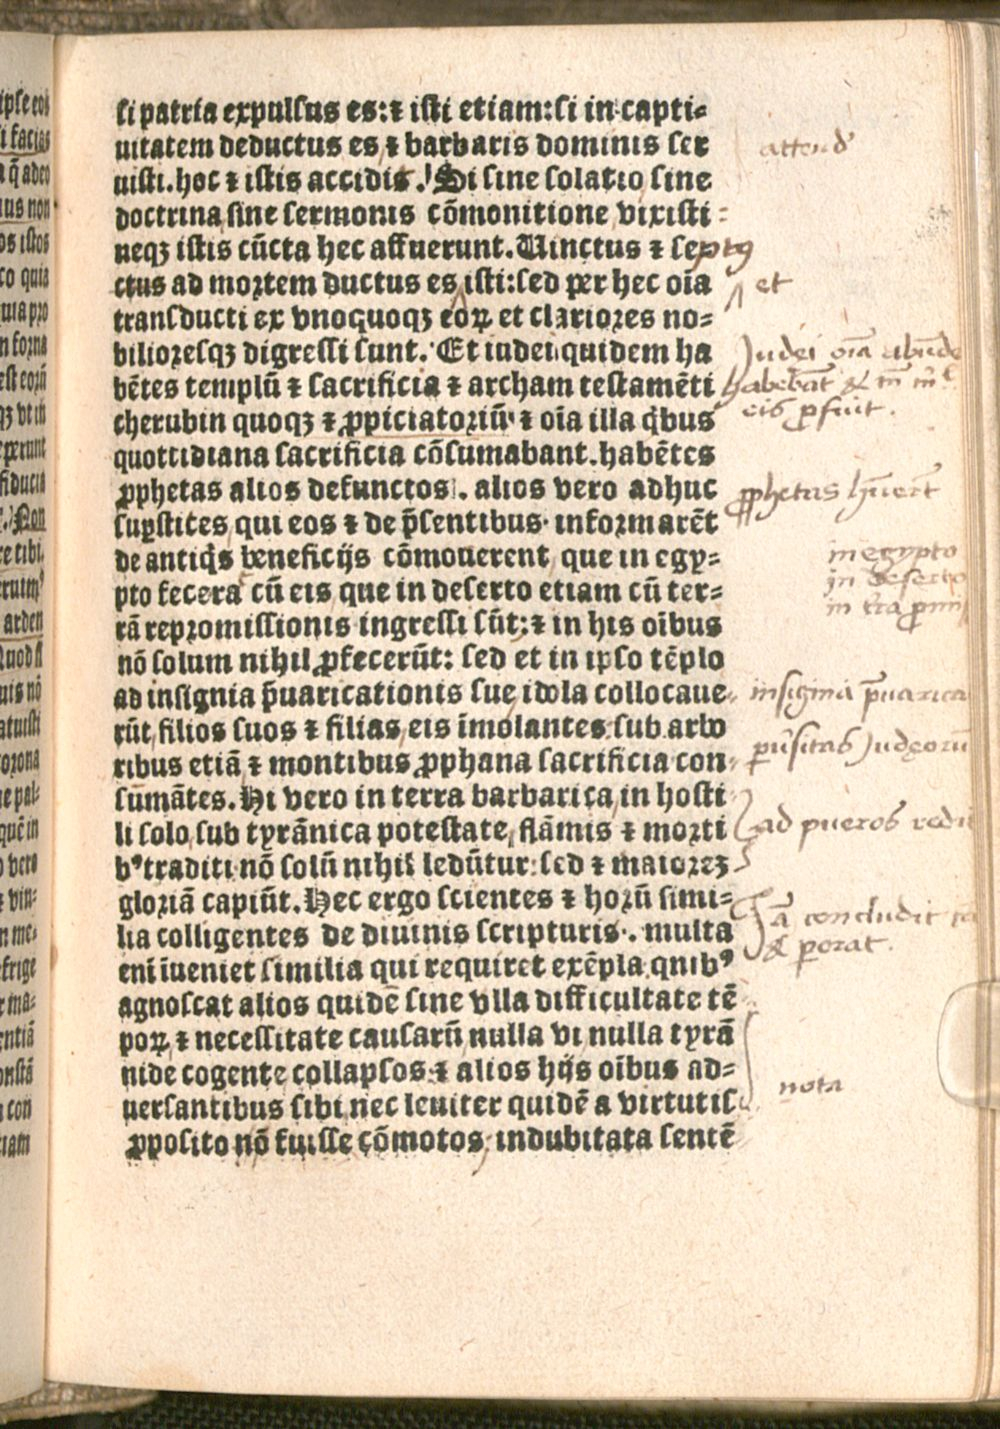 si patria expulsus es:⁊ isti etiam:si in capti-
uitatem deductus es ⁊ barbaris dominis ser
uisti.hoc ⁊ istis accidit. Si sine solatio sine
doctrina sine sermonis cōmonitione vixisti :
neqꝫ istis cūcta hec affuerunt.Uinctus ⁊ septus
ctus ad mortem ductus es isti:sed per hec oīa
transducti ex vnoquoqꝫ eoꝝ et clariores no-
bilioresqꝫ digressi sunt. Et iudei quidem ha
bētes templū ⁊ sacrificia ⁊ archam testamēti
cherubin quoqꝫ ⁊ ꝓpiciatoriū ⁊ oīa illa q̇bus
quottidiana sacrificia cōsumabant.habētes
ꝓphetas alios defunctos. alios vero adhuc
suꝑstites qui eos ⁊ de p̄sentibus informarēt
de antiq̇s beneficijs cōmouerent que in egy-
pto fecerat cū eis que in deserto etiam cū ter-
rā repromissionis ingressi sūt:⁊ in his oībus
nō solum nihil ꝓfecerūt: sed et in ipso tēplo
ad insignia p̄uaricationis sue idola collocaue-
rūt filios suos ⁊ filias eis īmolantes sub arbo
ribus etiā ⁊ montibus ꝓphana sacrificia con-
sūmātes. Hi vero in terra barbarica in hosti
li solo sub tyrānica potestate flāmis ⁊ morti
bꝰ traditi nō solū nihil ledūtur sed ⁊ maiorez
gloriā capiūt. Hec ergo scientes ⁊ horū simi-
lia colligentes de diuinis scripturis. multa
eni īueniet similia qui requiret exēpla qnibꝰ
agnoscat alios quidē sine vlla difficultate tē
poꝝ ⁊ necessitate causarū nulla vi nulla tyrā
nide cogente collapsos ⁊ alios hijs oībus ad-
uersantibus sibi nec leuiter quidē a virtutis
ꝓposito nō fuisse cōmotos indubitata sentē
attend
et
Judei oīa abūde
habebāt & tn̄
eis ꝓfuit.
ꝓphetas
in egypto
in deserto
in
insignia p̄uarica
Judęorū
ad pueros redi
concludit
& ꝑorat.
nota
ipse eos
i facias
a q̄ adeo
ius non
os istos
co quia
quia pro
n forna
est eorū
fiducia
Non
re tibi.
arden
Quod si
uis nō
atuisti
corona
ne pal-
quē in
o vero
vin-
n me-
efrige
r ma-
entiā
onstā
con
ciam